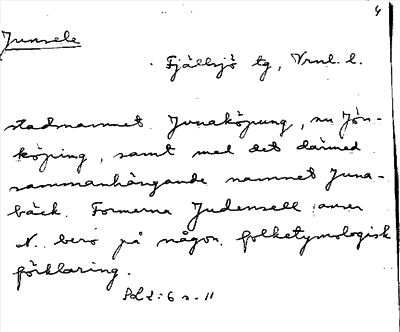 4
Junsele
Fjällsjö tg, Vrnl. l.
stadnamnet Junaköpung, nu Jön-
köping, samt med det därmed
sammanhängande namnet Juna-
bäck. Formerna Judensell anser
N. bero på någon folketymologisk
förklaring.
SoL 2:6 s. 11